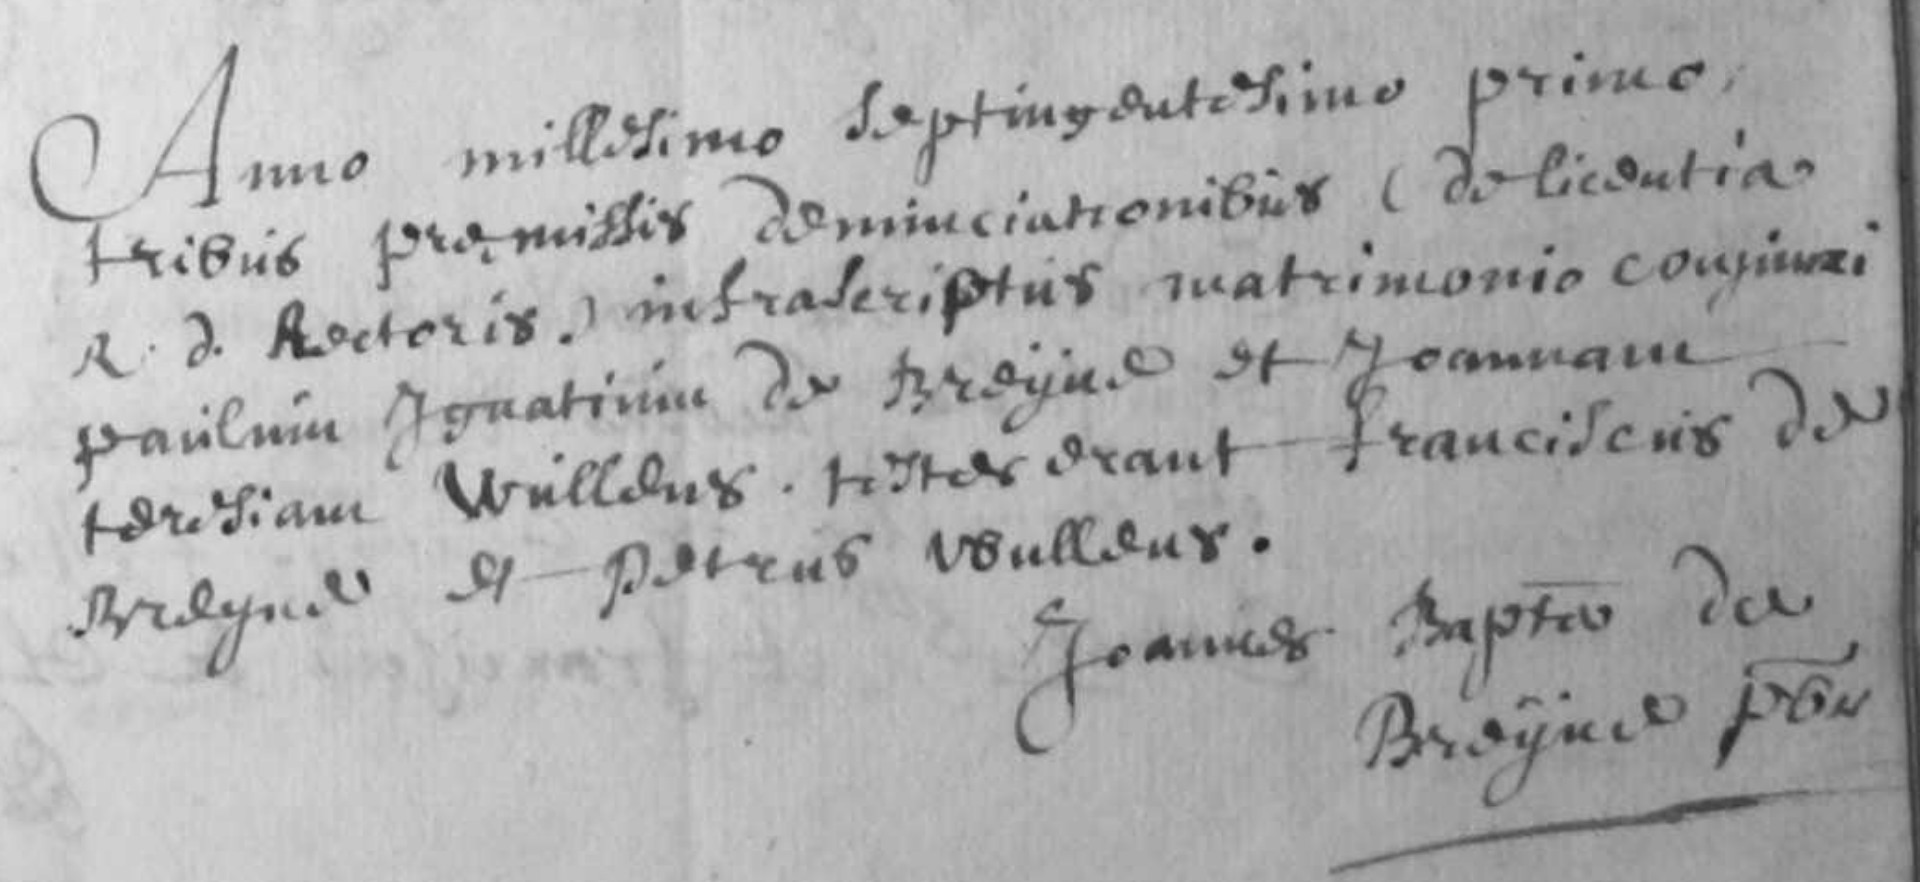 Anno millesimo septingentesimo primo,
tribus præmissis denunciationibus (de licentia
R. d. Rectoris.) infrascriptus matrimonio conjunxi
paulum Ignatium de Breÿne et Joannam
teresiam Wullens. testes erant franciscus de
Breyne et Petrus Wullens.
Joannes Bapta de
Breÿne pbr